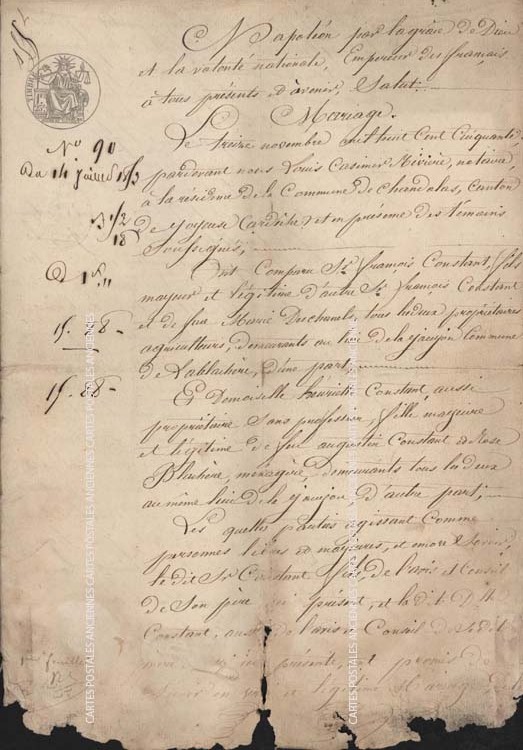 Napoléon par la grâce de Dieu
et la volonté nationale, Empereur des français
à tous présents et à venir, Salut.
Mariage.
Le treize novembre mil huit cent cinquante
pardevant nous Louis Casimir Rivière, notaire,
à la résidence de la Commune de Chandolas, canton
de Joyeuse (ardèche) et en présence des témoins
soussignés,
Ont Comparu Sr. françois Constant, fils
majeur et légitime d'autre Sr. françois Constant
et de feu Marie Deschanels, tous les deux propriétaires
agriculteurs, demeurants au lieu de la Commune
de Lablachère, d'une part,
Et Demoiselle Constant, aussi
propriétaire sans profession, fille majeure
et légitime de feu augustin Constant et Rose
Blachère, ménagère, demeurants tous les deux
au même lieu de d'autre part;
Les quelles parties agissant Comme
personnes libres et majeures, et encore Savoir,
le dit Sr Constant fils, de l'avis et Conseil
de Son père ici présent, et la dite Dlle
Constant, aussi de l'avis et Conseil de Sa dite
mère ici présente, ont promis de
et légitime Mariage
TIMBRE
No 90
Du 14
3 1/2
18
15. 8
15. 88
CARTES POSTALES ANCIENNES CARTES POSTALES ANCIENNES CARTES POSTALES ANCIENNES
CARTES POSTALES ANCIENNES CARTES POSTALES ANCIENNES CARTES POSTALES ANCIENNES